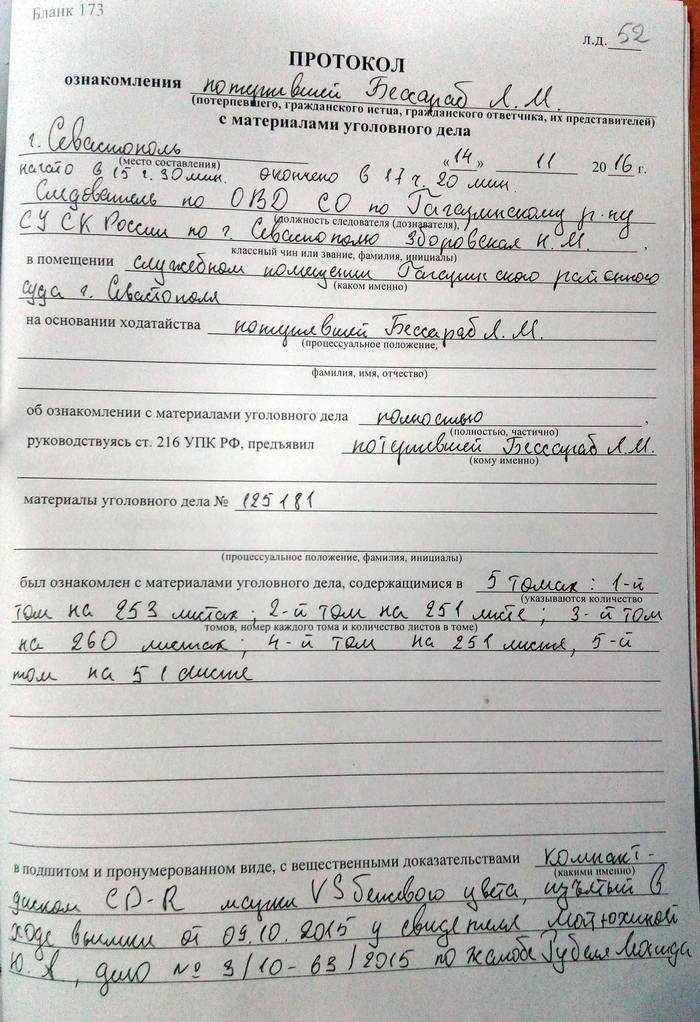 Бланк 173
Л.Д. 52
ПРОТОКОЛ
ознакомления потерпевшей Бессараб Л.М.
(потерпевшего, гражданского истца, гражданского ответчика, их представителей)
с материалами уголовного дела
г. Севастополь «14» 11 2016 г.
(место составления)
начато в 15 ч. 30 мин. окончено в 17 ч. 20 мин.
Следователь по ОВД СО по Гагаринскому р-ну
(должность следователя (дознавателя),
СУ СК России по г. Севастополю Зборовская Н.М. ,
классный чин или звание, фамилия, инициалы)
в помещении служебном помещении Гагаринского районного
(каком именно)
суда г. Севастополя
на основании ходатайства потерпевшей Бессараб Л.М.
(процессуальное положение,
фамилия, имя, отчество)
об ознакомлении с материалами уголовного дела полностью ,
(полностью, частично)
руководствуясь ст. 216 УПК РФ, предъявил потерпевшей Бессараб Л.М.
(кому именно)
материалы уголовного дела № 125181
(процессуальное положение, фамилия, инициалы)
был ознакомлен с материалами уголовного дела, содержащимися в 5 томах: 1-й
(указываются количество
том на 253 листах; 2-й том на 251 листе; 3-й том
томов, номер каждого тома и количество листов в томе)
на 260 листах; 4-й том на 251 листе, 5-й
том на 51 листе
в подшитом и пронумерованном виде, с вещественными доказательствами компакт-
(какими именно)
диском CD-R марки VS бежевого цвета, изъятый в
ходе выемки от 09.10.2015 у свидетеля Матюхиной
Ю.А, дело № 3/10-63/2015 по жалобе Рубеля